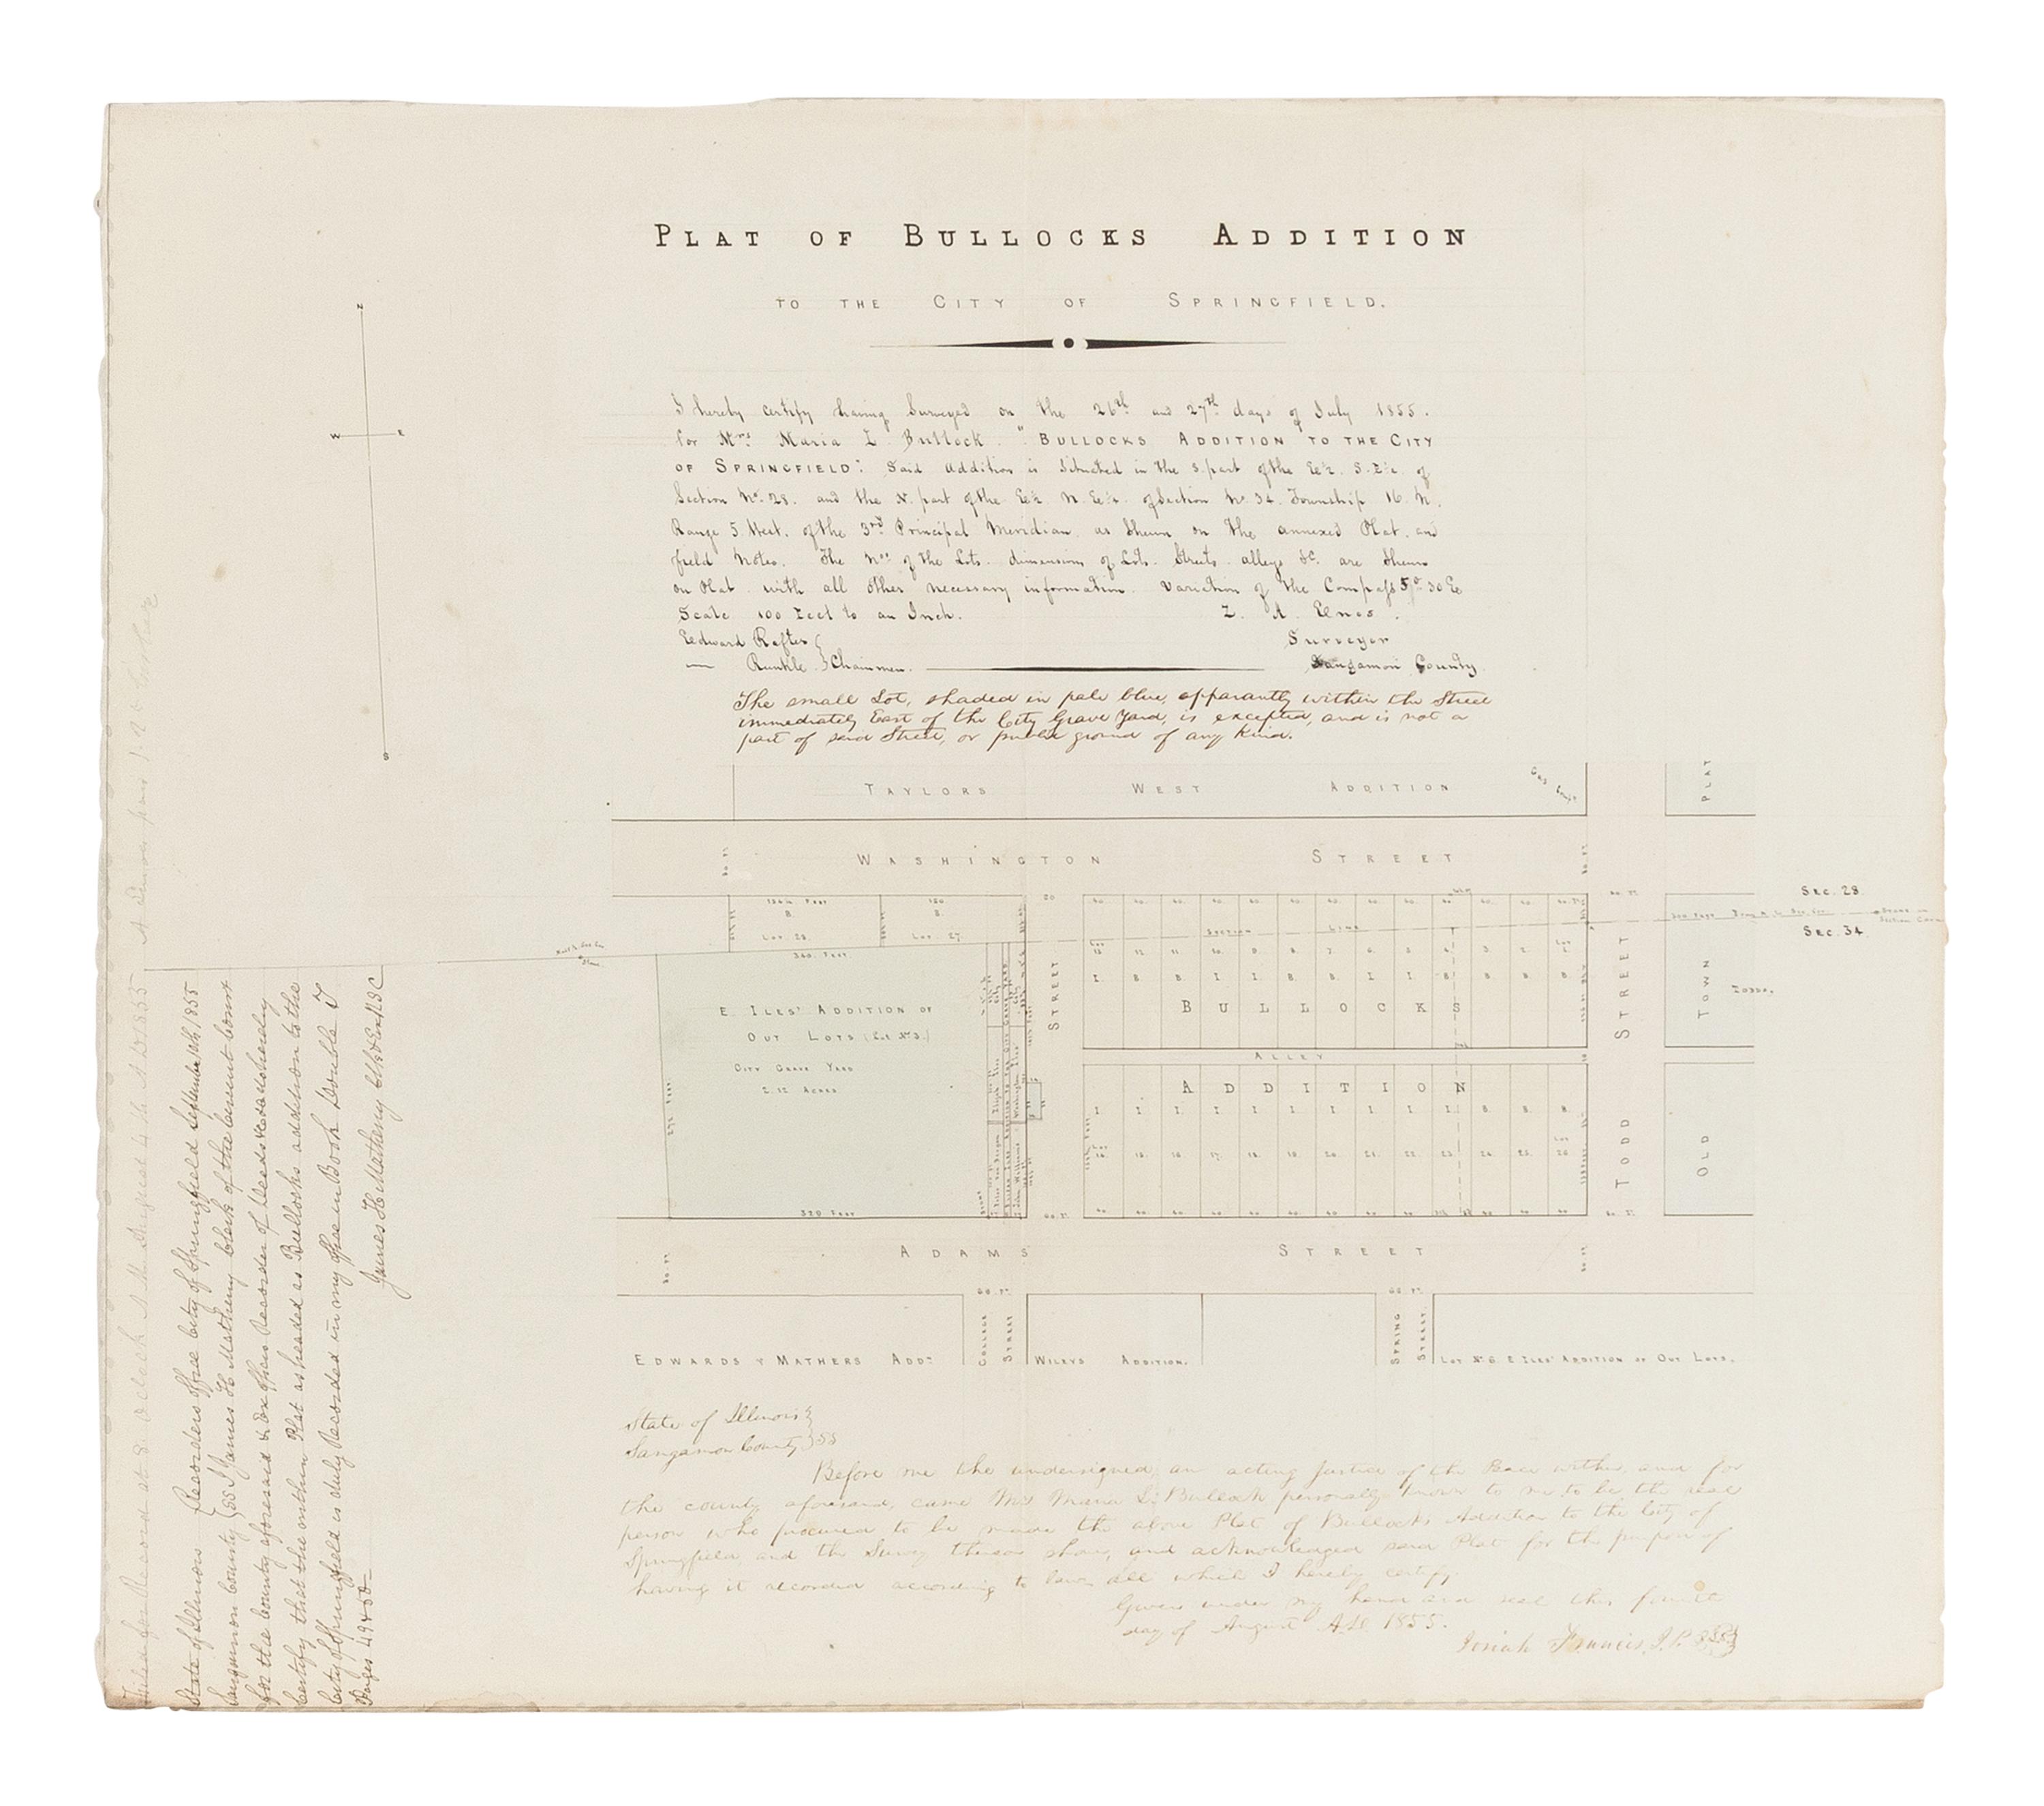 PLAT OF BULLOCKS ADDITION
TO THE CITY OF SPRINGFIELD.
N
W E
S
I hereby certify having Surveyed on the 26th and 27th days of July 1855.
for Mrs Maria L Bullock "BULLOCKS ADDITION TO THE CITY
OF SPRINGFIELD". Said addition is Situated in the S. part of the E½ S.E¼ of
Section No. 28. and the N. part of the E½ N.E¼ of Section No 34 Township 16 N.
Range 5 West. of the 3rd Principal Meridian as Shewn on the annexed Plat. and
field Notes. The Nos of the Lots. dimensions of Lots. Streets alleys &c. are Shewn
on Plat with all other necessary information. Variation of the Compass 5° 30 E
Scale 100 Feet to an Inch. Z. A. Enos.
Edward Rafter Surveyor
— Runkle Chainmen. Sangamon County
The small Lot, shaded in pale blue, apparantly within the Street
immediately East of the City Grave Yard, is excepted, and is not a
part of said Street, or public ground of any kind.
TAYLORS WEST ADDITION
PLAT
WASHINGTON STREET
80 FT.
SEC. 28
SEC. 34
Lot 28. Lot 27.
340 FEET
SECTION LINE
12. 11. 10. 9. 8. 7. 6. 5. 4. 3. 2. 1.
BULLOCKS
STREET
ALLEY
ADDITION
E ILES' ADDITION OF
OUT LOTS (Lot No 3.)
CITY GRAVE YARD
2.12 ACRES
320 FEET
15. 16. 17. 18. 19. 20. 21. 22. 23. 24. 25. 26.
TODD STREET
OLD TOWN
TODDS.
ADAMS STREET
60 FT. 60 FT.
EDWARDS & MATHERS ADDN
COLLEGE STREET
WILEYS ADDITION.
SPRING STREET
LOT No 6. E ILES' ADDITION OF OUT LOTS.
State of Illinois
Sangamon County SS
Before me the undersigned, an acting Justice of the Peace within and for
the county aforesaid, came Mrs Maria L. Bullock personally known to me to be the real
person who procured to be made the above Plat of Bullocks Addition to the City of
Springfield, and the Survey thereon shown, and acknowledged said Plat for the purpose of
having it recorded according to law. all which I hereby certify.
Given under my hand and seal this fourth
day of August A.D. 1855.
Josiah Francis, J.P.
Filed for Record at 8 O Clock A.M. August 4th A D 1855
State of Illinois Recorders office City of Springfield September 1855
Sangamon County SS I James H Matheny Clerk of the Circuit Court
for the County aforesaid & Ex officio Recorder of Deeds do hereby
Certify that the within Plat as headed as Bullocks addition to the
City of Springfield is duly Recorded in my office in Book Double T
Pages 49
James H Matheny Clk & Ex